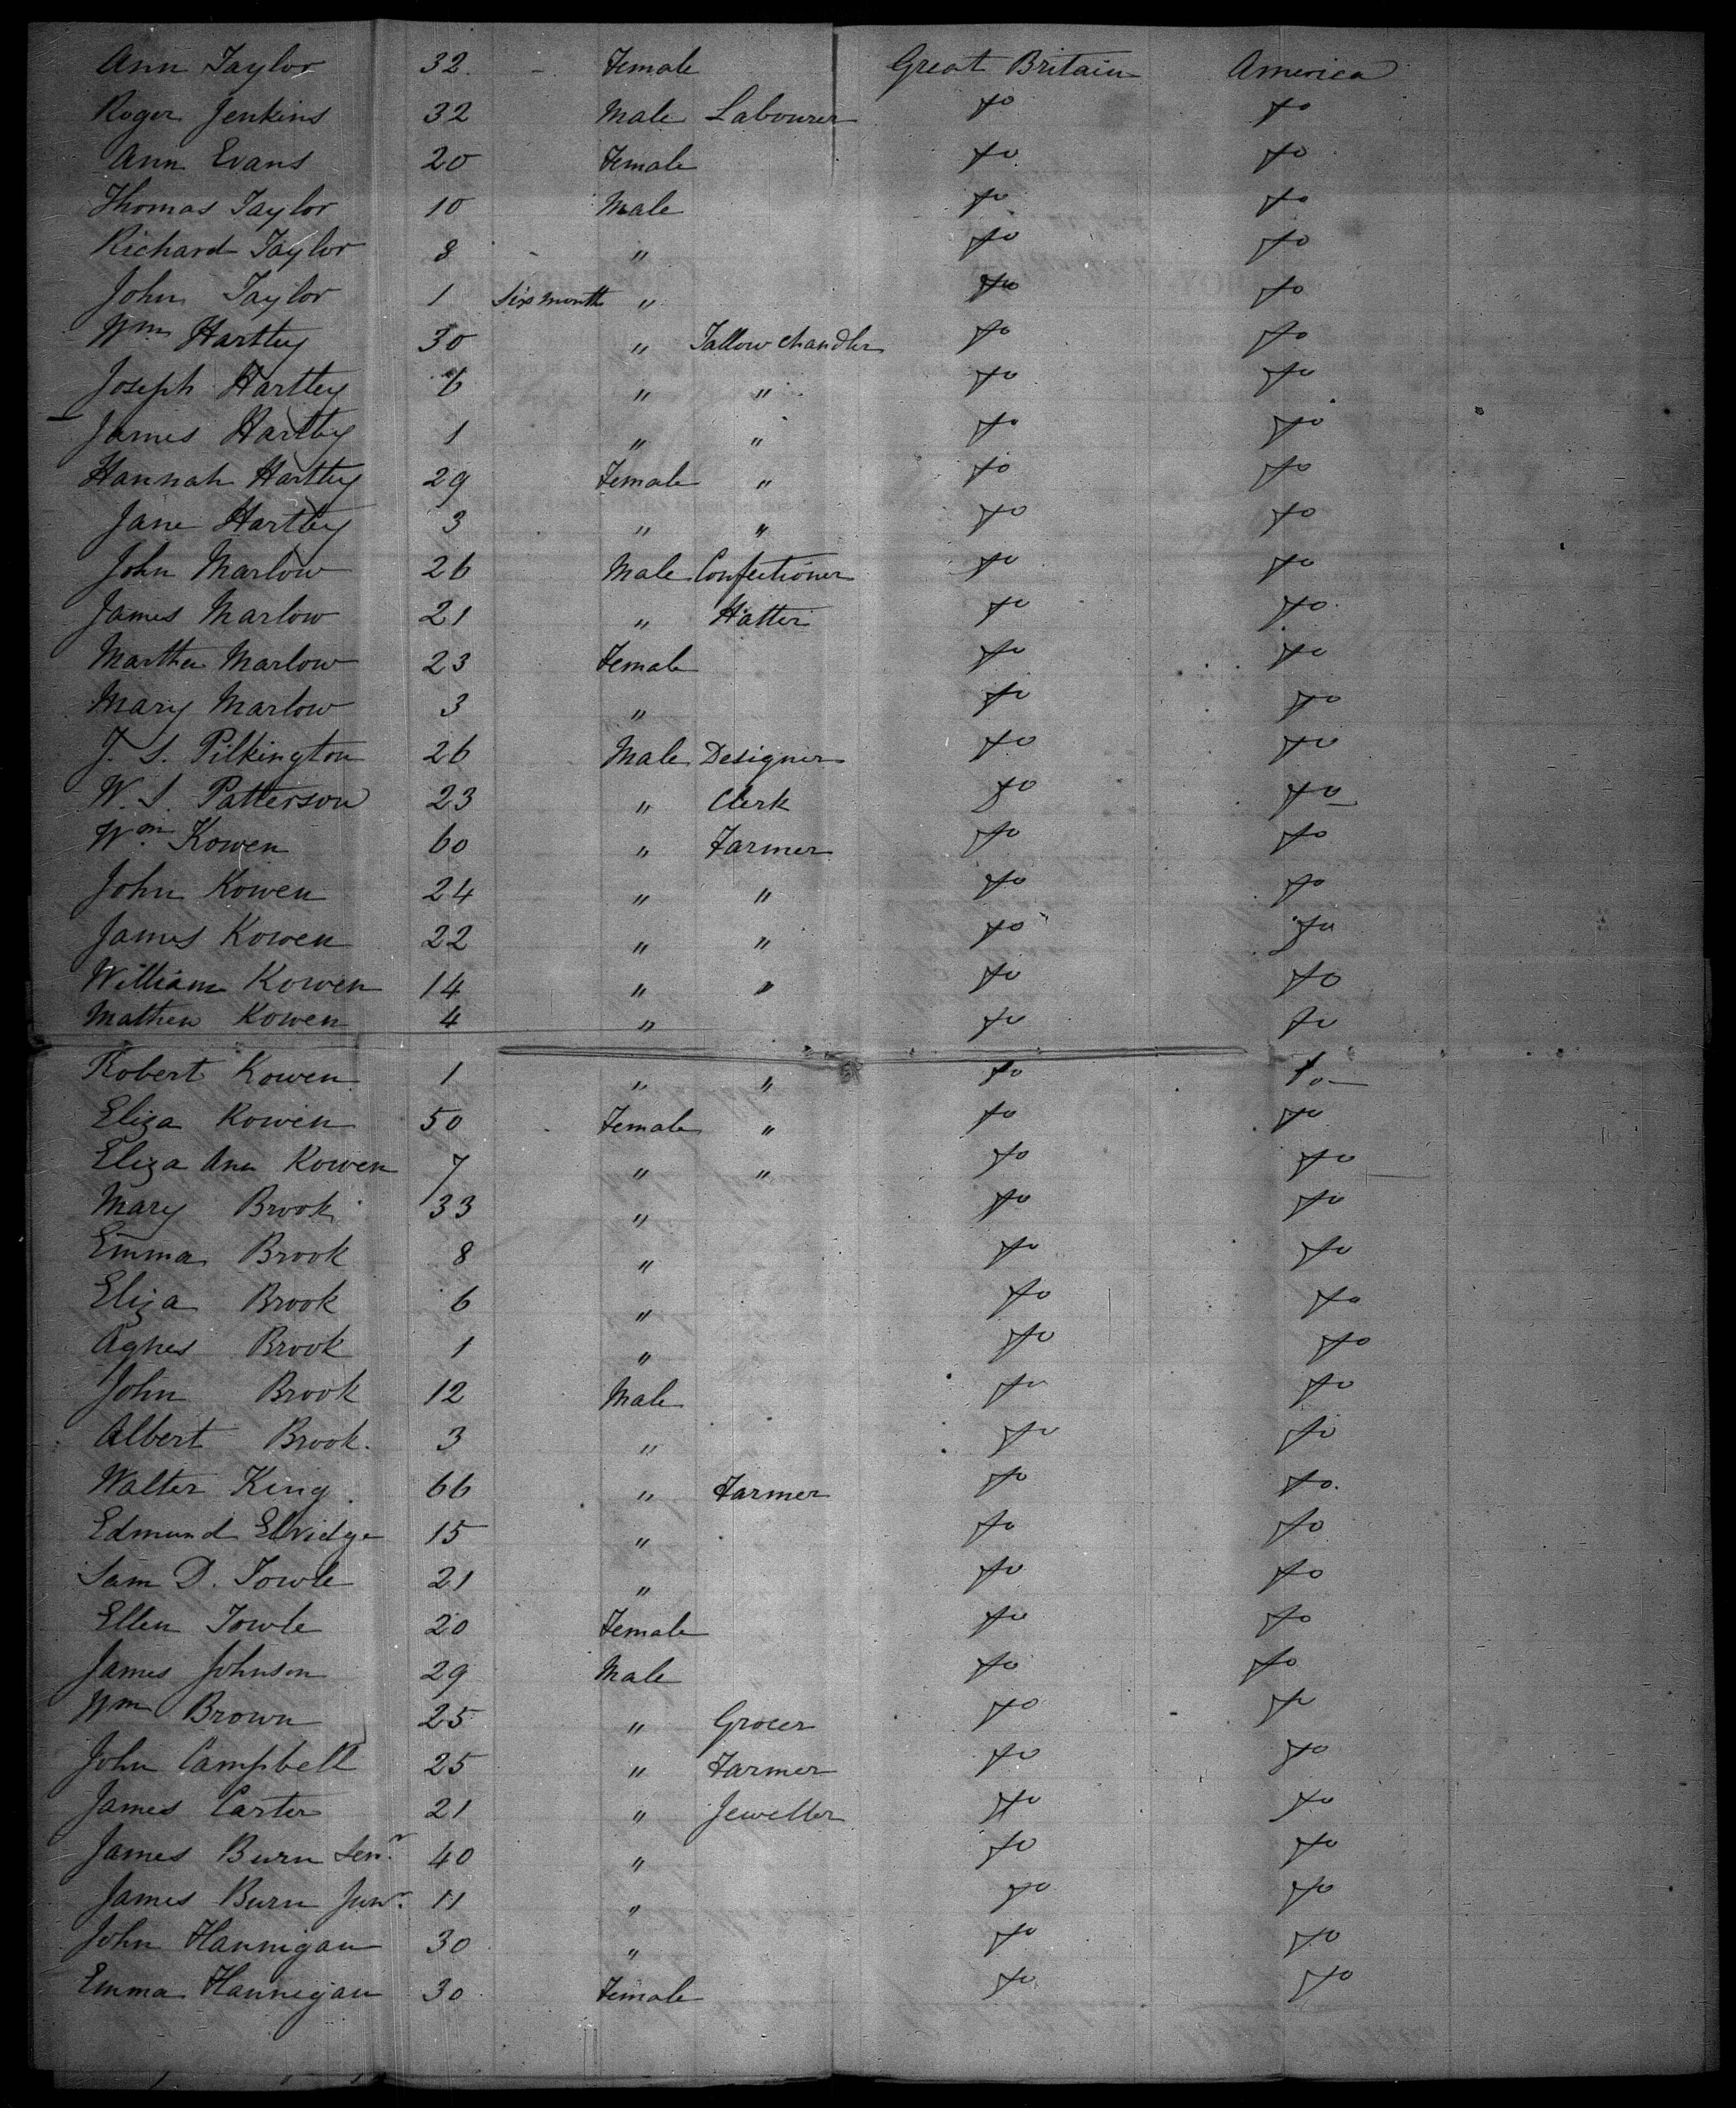 Ann Taylor 32 - Female Great Britain America
Roger Jenkins 32 Male Labourer Do Do
Ann Evans 20 Female Do Do
Thomas Taylor 10 Male Do Do
Richard Taylor 8 - " Do Do
John Taylor 1 six month " Do Do
Wm Hartley 30 " Tallow chandler Do Do
Joseph Hartley 6 " " Do Do
James Hartley 1 " " Do Do
Hannah Hartley 29 Female " Do Do
Jane Hartley 3 " " Do Do
John Marlow 26 Male Confectioner Do Do
James Marlow 21 " Hatter Do Do
Martha Marlow 23 Female Do Do
Mary Marlow 3 " Do Do
J. S. Pilkington 26 Male Designer Do Do
W. S. Patterson 23 " Clerk Do Do
Wm Kowen 60 " Farmer Do Do
John Kowen 24 " " Do Do
James Kowen 22 " " Do Do
William Kowen 14 " " Do Do
Mathew Kowen 4 " Do Do
Robert Kowen 1 " " Do Do
Eliza Kowen 50 Female " Do Do
Eliza Ann Kowen 7 " " Do Do
Mary Brook 33 " Do Do
Emma Brook 8 " Do Do
Eliza Brook 6 " Do Do
Agnes Brook 1 " Do Do
John Brook 12 Male Do Do
Albert Brook 3 " Do Do
Walter King 66 " Farmer Do Do
Edmund Elvidge 15 " Do Do
Sam D. Towle 21 " Do Do
Ellen Towle 20 Female Do Do
James Johnson 29 Male Do Do
Wm Brown 25 " Grocer Do Do
John Campbell 25 " Farmer Do Do
James Carter 21 " Jeweller Do Do
James Burn Senr 40 " Do Do
James Burn Junr 11 " Do Do
John Hannigan 30 " Do Do
Emma Hannigan 30 Female Do Do